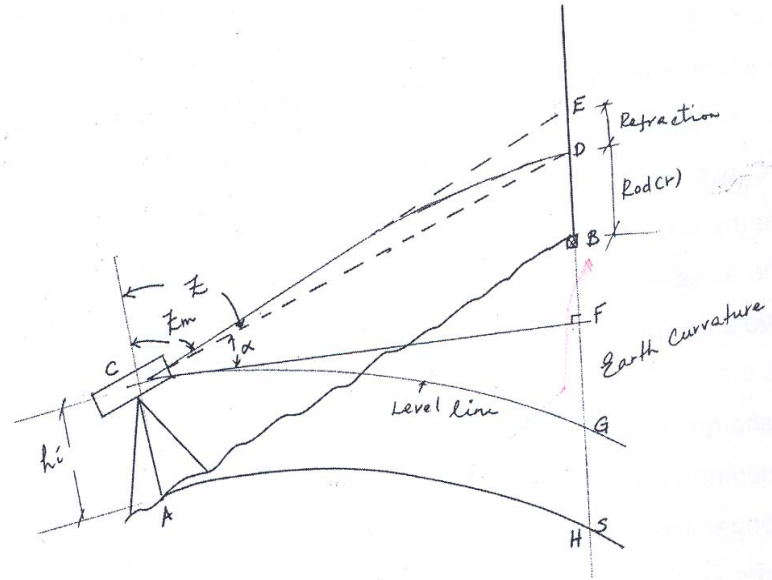 E
Refraction
D
Rod(r)
B
Z
Zm
α
F
C
Earth Curvature
Level line
hi
G
A
H S